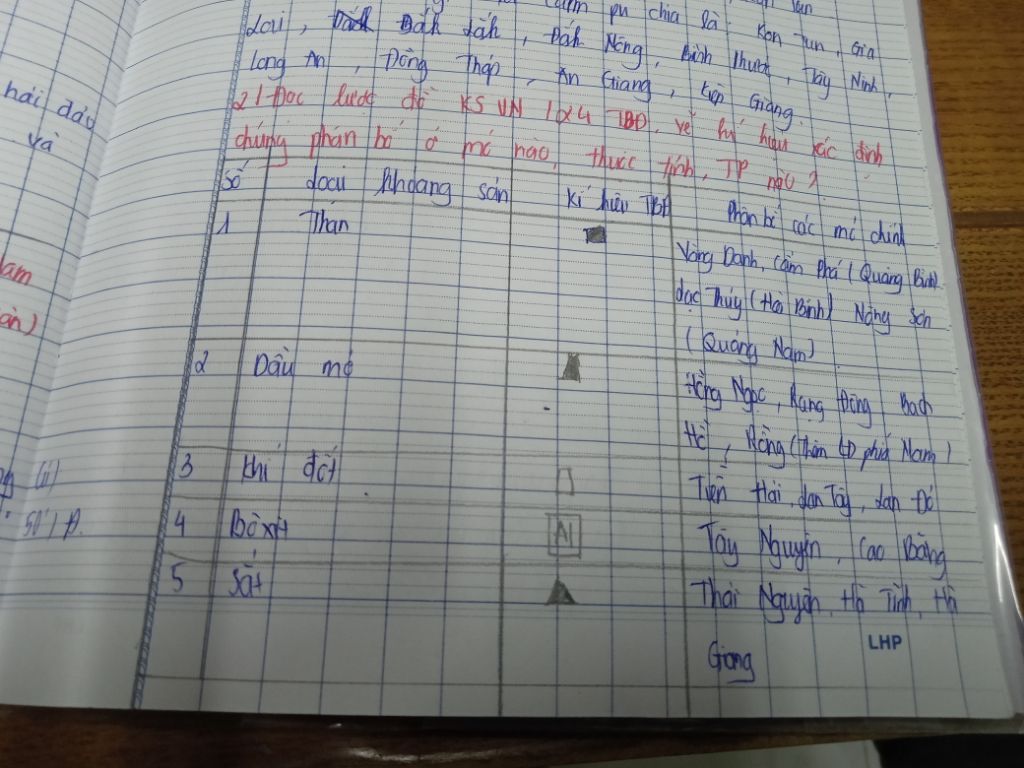 hải đảo
và
Lai, Đăk Lăk, Đăk Nông, Bình Phước, Tây Ninh,
Long An, Đồng Tháp, An Giang, Kiên Giang.
2/ Đọc lược đồ KSVN 1 TBĐ, vẽ kí hiệu xác định
chúng phân bố ở mỏ nào, thuộc tỉnh, TP nào?
Số Loại khoáng sản Kí hiệu TBĐ Phân bố các mỏ chính
1 Than Vàng Danh, Cẩm Phả (Quảng Bình)
Lạc Thủy (Hòa Bình) Nông Sơn
(Quảng Nam)
2 Dầu mỏ Hồng Ngọc, Rạng Đông Bạch
Hổ, Rồng (Thềm LĐ phía Nam)
3 Khí đốt Tiền Hải, Lan Tây, Lan Đỏ
4 Bôxit Al Tây Nguyên, Cao Bằng
5 Sắt Thái Nguyên, Hà Tĩnh, Hà
Giang
LHP